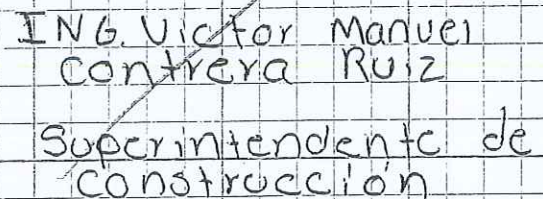 ING. Victor Manuel
Contrera Ruiz
Superintendente de
Construcción